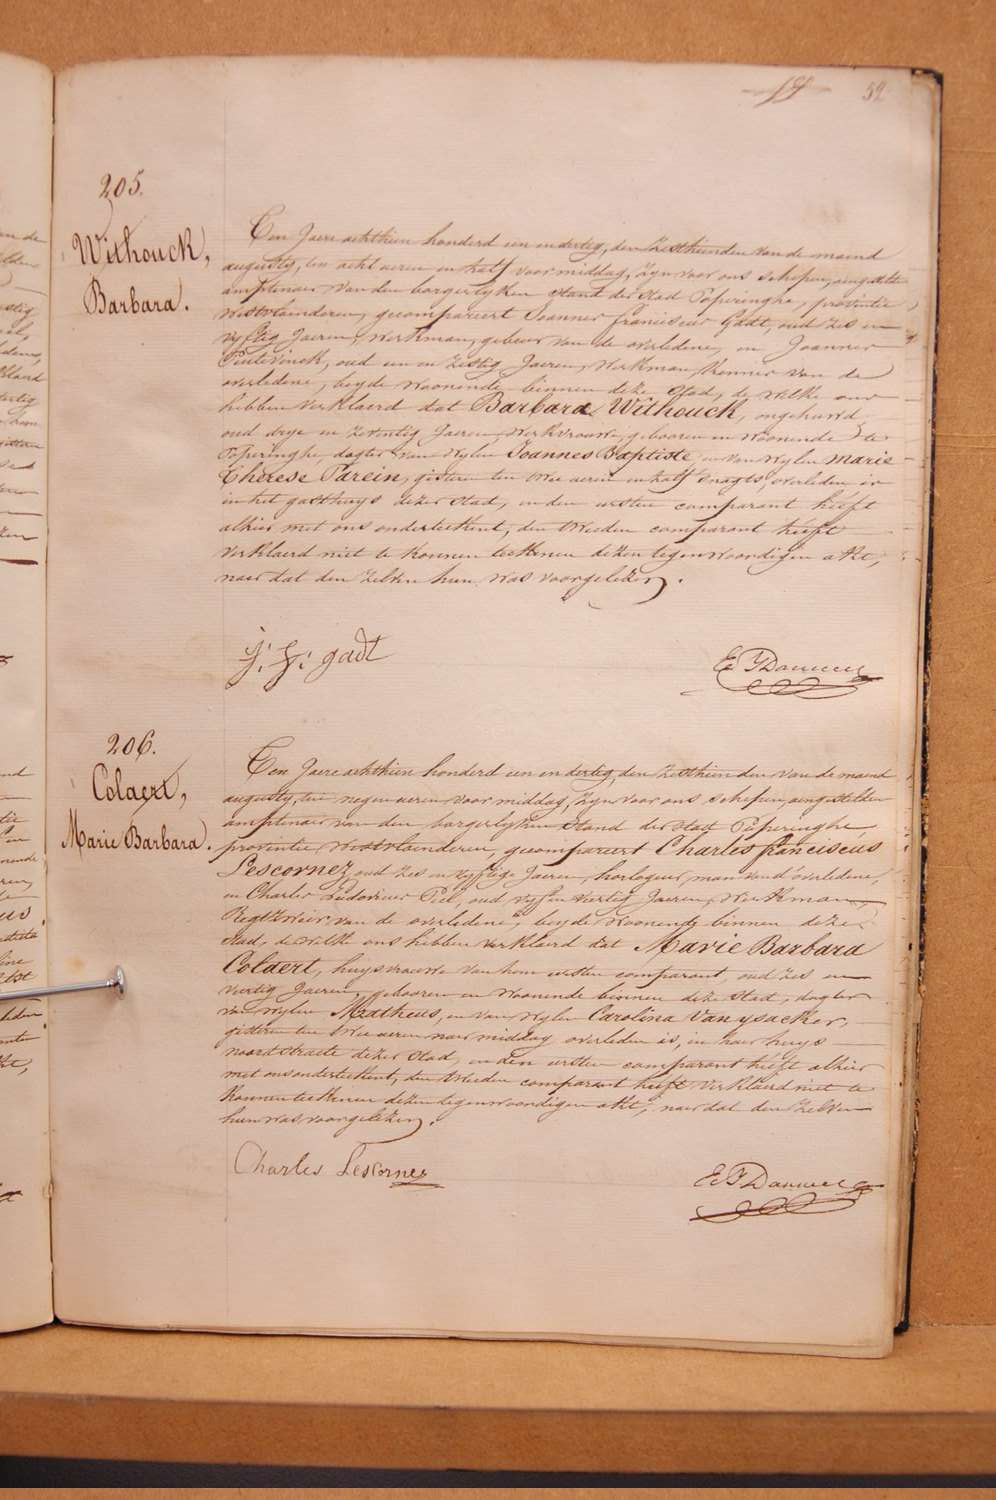 52
205.
Withouck,
Barbara.
Een Jaere achthien honderd een en dertig, den zesthienden van de maend
augusty, ten acht ueren en half voormiddag, zyn voor ons schepen, aengestelden
amptenaer van den borgerlyken stand der stad Poperinghe, provintie
Westvlaenderen, gecompareert Joannes franciscus Gadt, oud zes en
vyftig Jaeren, werkman, gebeur van de overledene, en Joannes
oud een en zestig Jaeren, werkman, kennis van de
overledene, beyde woonende binnen deze stad, de welke ons
hebben verklaerd dat Barbara Withouck, ongehuwd
oud drye en zeventig Jaeren, werkvrouwe, gebooren en woonende te
Poperinghe, dogter van wylen Joannes Baptiste, en van wylen Marie
Therese Parein, gisteren ten twee ueren en half snagts, overleden is
in het gasthuys dezer stad, en den eersten comparant heeft
alhier met ons onderteekent, den tweeden comparant heeft
verklaerd niet te konnen teekenen dezen tegenwoordigen akt,
naer dat den zelven hun was voorgelezen.
j. f. gadt
206.
Colaert,
Marie Barbara.
Een Jaere achthien honderd een en dertig, den zesthienden van de maend
augusty, ten negen ueren voormiddag, zyn voor ons schepen, aengestelden
amptenaer van den borgerlyken stand der stad Poperinghe,
provintie Westvlaenderen, gecompareert Charles franciscus
Lescornez, oud zes en vyftig Jaeren, horlogeur, man van d'overledene,
en Charles Ludovicus Piel, oud vyf en veertig Jaeren, werkman,
van de overledene, beyde woonende binnen deze
stad, de welke ons hebben verklaerd dat Marie Barbara
Colaert, huysvrouwe van hem eersten comparant, oud zes en
veertig Jaeren, gebooren en woonende binnen deze stad, dogter
van wylen Matheus, en van wylen Carolina Vanysacker,
gisteren ten twee ueren naermiddag overleden is, in haer huys
noordstraete dezer stad, en den eersten comparant heeft alhier
met ons onderteekent, den tweeden comparant heeft verklaerd niet te
konnen teekenen dezen tegenwoordigen akt, naer dat den zelven
hun was voorgelezen.
Charles Lescornez